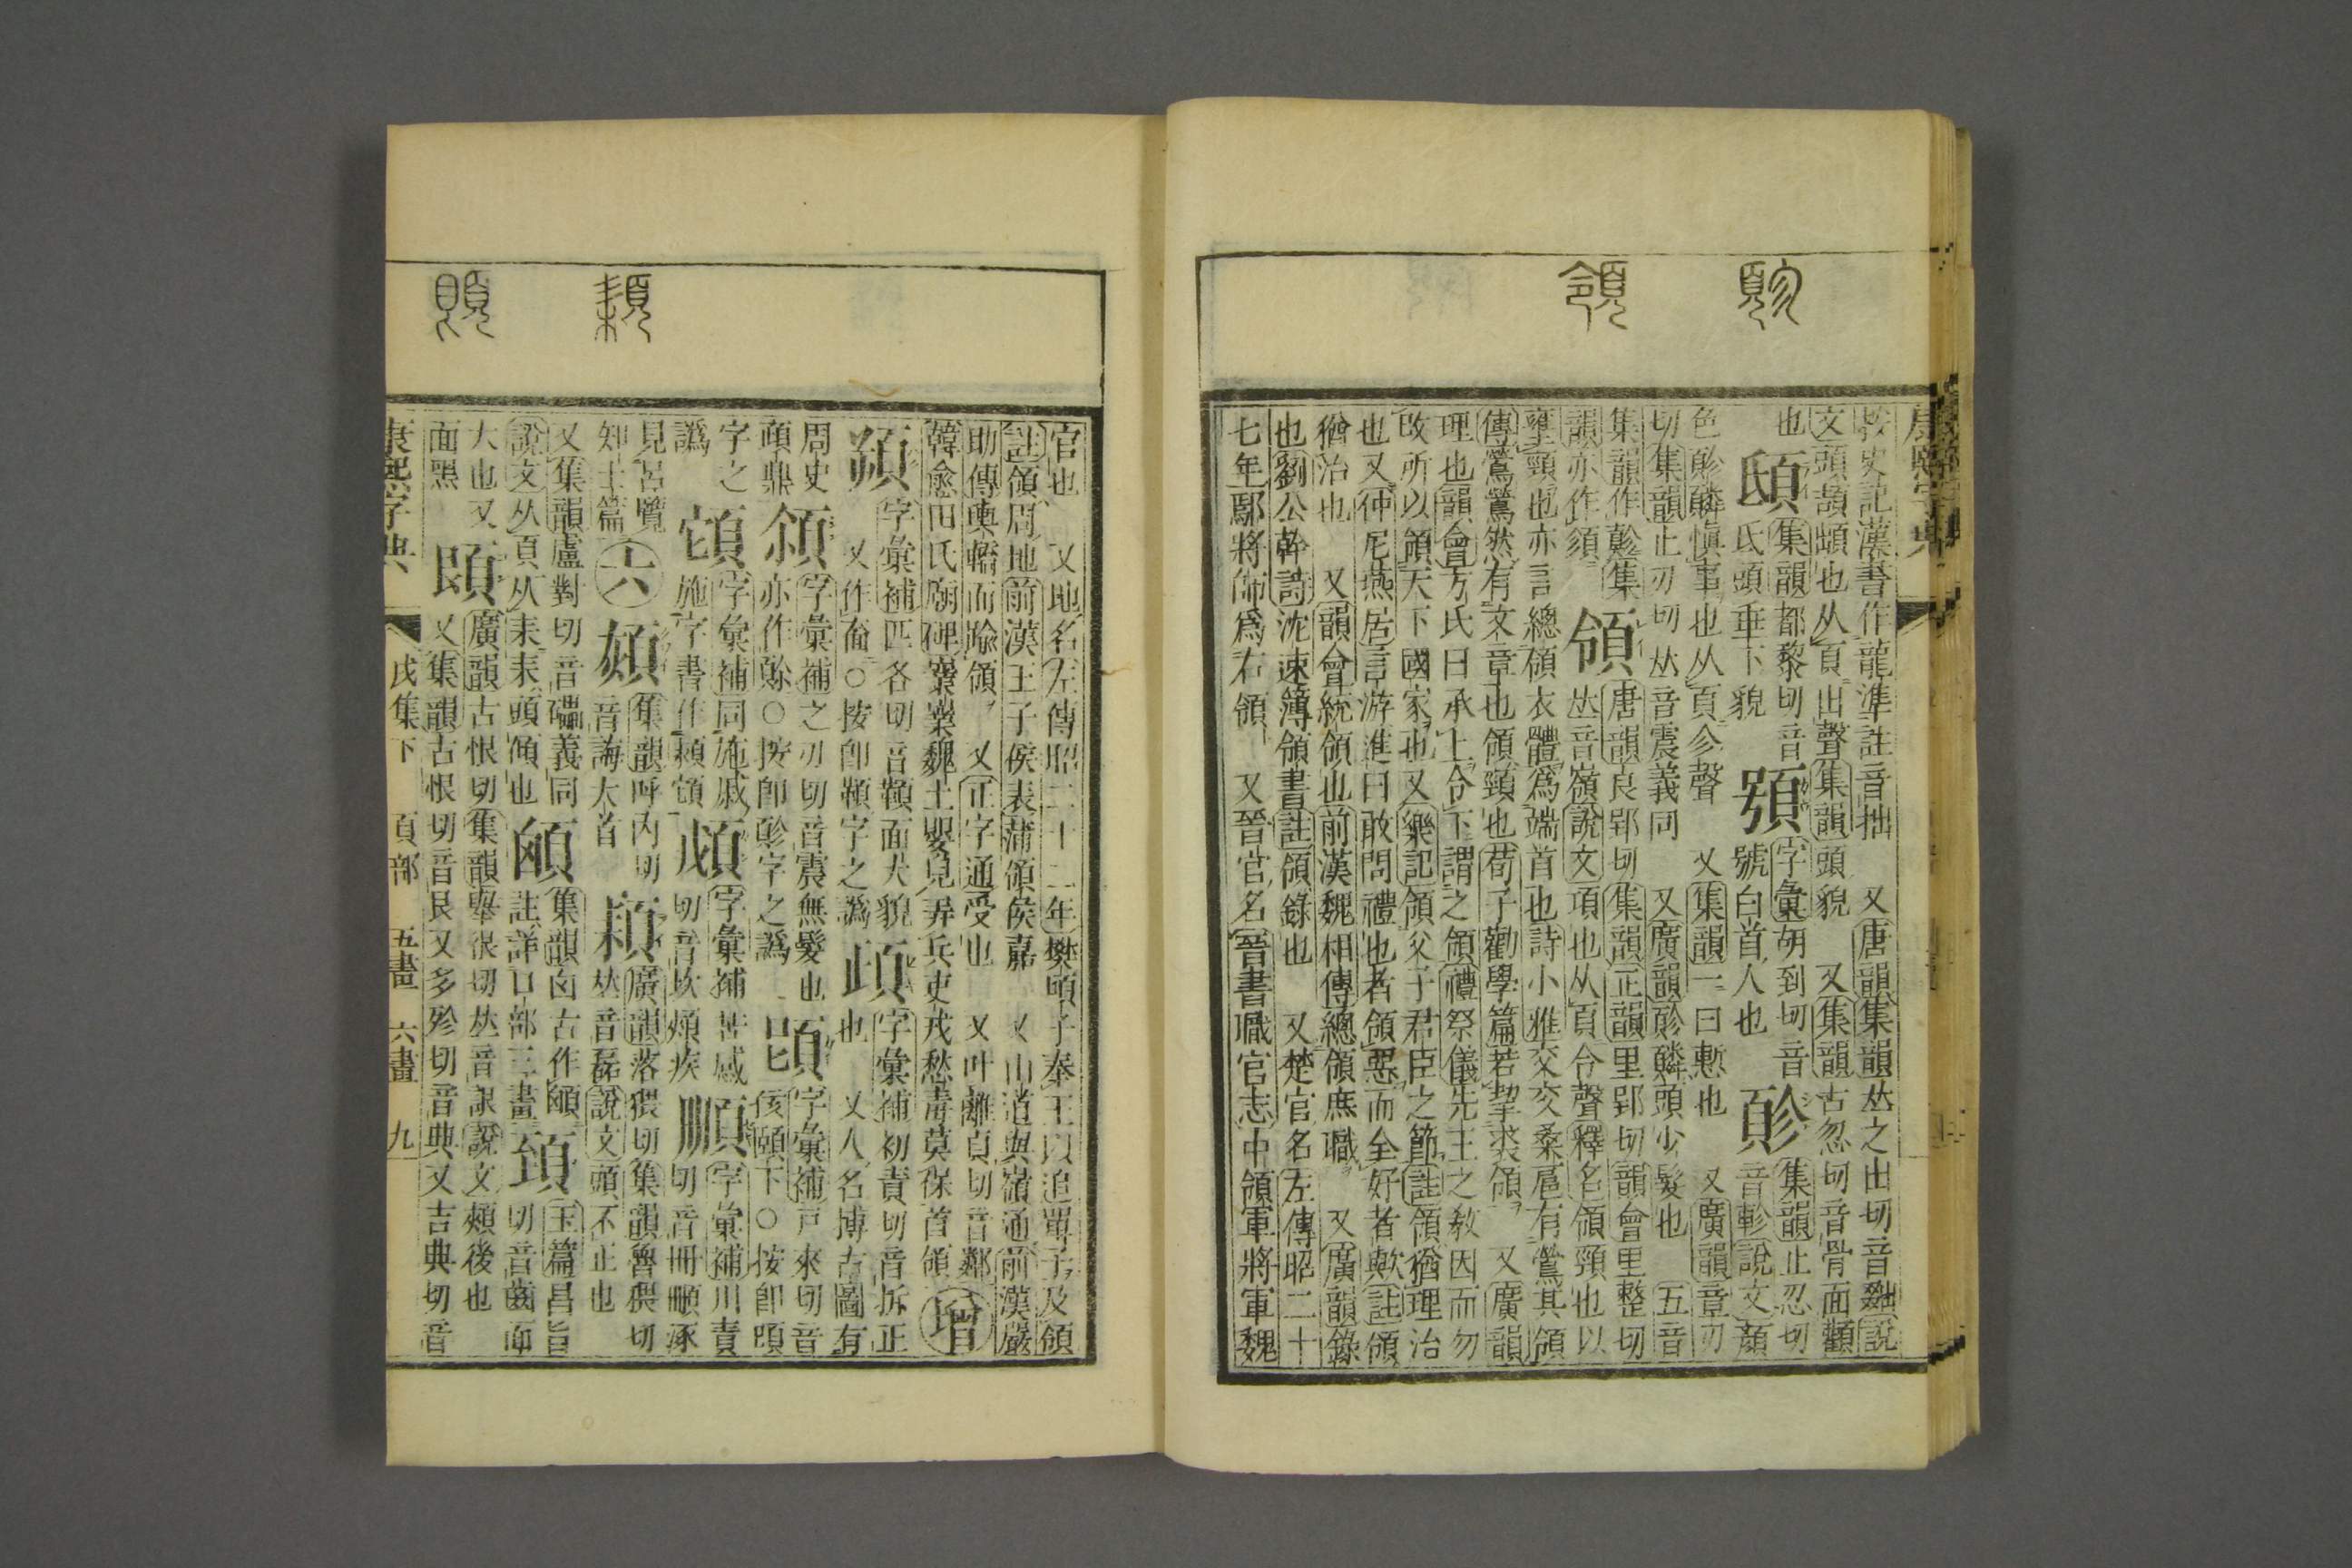 按史記漢書作龍準註音拙　又唐韻集韻𠀤之出切音𪓐說
文頭頡䪼也从頁出聲集韻頭貌　又集韻古忽切音骨面顴
也
䫌
集韻都黎切音
氐頭垂下貌
字彙胡到切音
號白首人也
集韻止忍切
音軫說文顏
色䫬䫰愼事也从頁㐱聲　又集韻一曰慙也　又廣韻章刃
切集韻止刃切𠀤音震義同　又廣韻䫬䫰頭少髮也　五音
集韻作䫬集
韻亦作須
領
唐韻良郢切集韻正韻里郢切韻會里整切
𠀤音嶺說文項也从頁令聲釋名領頸也以
壅頸也亦言總領衣體爲端首也詩小雅交交桑扈有鶯其領
傳鶯鶯然有文章也領頸也荀子勸學篇若挈裘領　又廣韻
理也韻會方氏曰承上令下謂之領禮祭儀先王之敎因而勿
改所以領天下國家也又樂記領父子君臣之節註領猶理治
也又仲尼燕居言游進曰敢問禮也者領惡而全好者歟註領
猶治也　又韻會統領也前漢魏相傳總領庶職　又廣韻錄
也劉公幹詩沈迷簿領書註領錄也　又楚官名左傳昭二十
七年鄢將師爲右領　又晉官名晉書職官志中領軍將軍魏
官也　又地名左傳昭二十二年樊頃子奉王以追單子及領
註領周地前漢王子侯表蒲領侯嘉　又山道與嶺通前漢嚴
助傳輿轎而隃領　又正字通受也　又叶離貞切音鄰
韓愈田氏廟碑業業魏土嬰兒弄兵吏戎愁毒莫保首領
增
字彙補匹各切音顙面大貌
又作㒵○按卽顙字之譌
字彙補初責切音拆正
也　又人名博古圖有
周史
頙鼎
字彙補之刃切音震無髮也
亦作䫬○按卽䫬字之譌
字彙補戸來切音
侅頤下○按卽頣
字之
譌
字彙補同施戚
施字書作䫌䪾
字彙補苦感
切音坎頰疾
字彙補川責
切音冊䫄涿
見呂覽
知士篇
六
集韻呼內切
音誨大首
廣韻落猥切集韻魯猥切
𠀤音磊說文頭不正也
又集韻盧對切音礧義同
說文从頁从耒耒頭傾也
集韻囟古作䪿
註詳口部三畫
玉篇昌旨
切音齒面
大也又
面黑
頣
廣韻古恨切集韻舉很切𠀤音詪說文頰後也
又集韻古恨切音艮又多殄切音典又吉典切音
康熙字典
戌集下　頁部　五畫　六畫　九